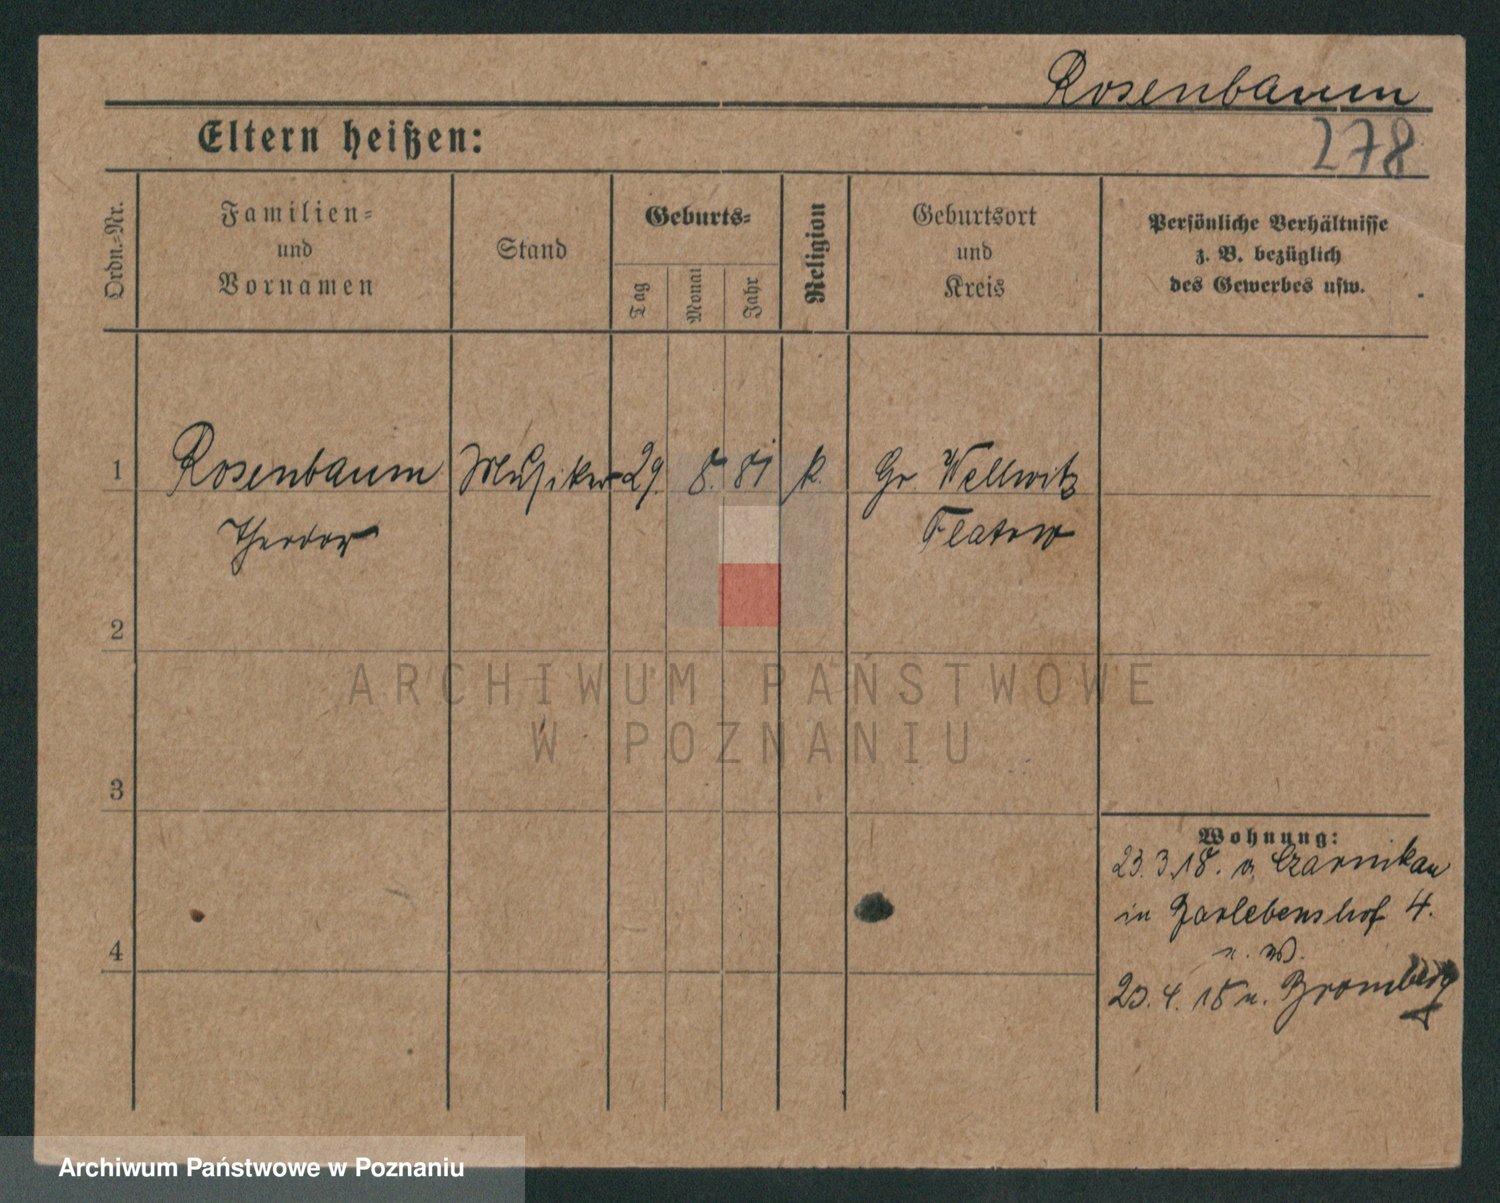 Rosenbaum
278
Eltern heißen:
Ordn.=Nr.
Familien=
und
Vornamen
Stand
Geburts=
Tag
Monat
Jahr
Religion
Geburtsort
und
Kreis
Persönliche Verhältnisse
z. B. bezüglich
des Gewerbes usw.
1
Rosenbaum Musiker 29. 8. 81 k. Gr. Wellwitz
Theodor Flatow
2
ARCHIWUM PAŃSTWOWE
W POZNANIU
3
Wohnung:
23.3.18. v. Czarnikau
in 4.
4
23.4.18 n. Bromberg
Archiwum Państwowe w Poznaniu